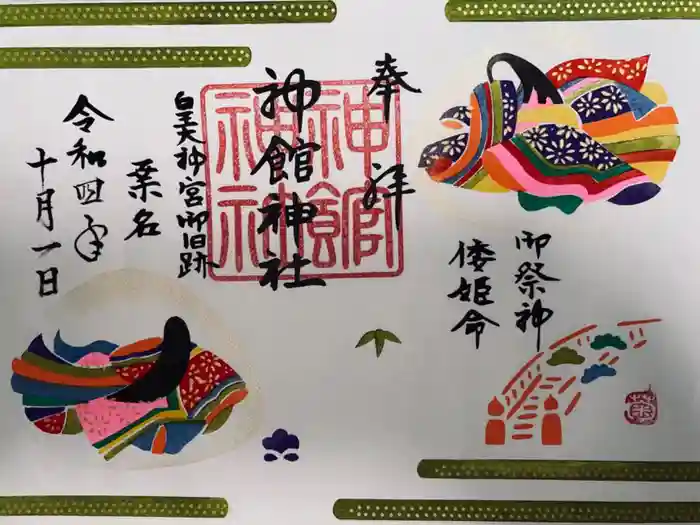 奉拝
神館神社
神館神社
皇大神宮御旧跡
桑名
令和四年
十月一日
御祭神
倭姫命